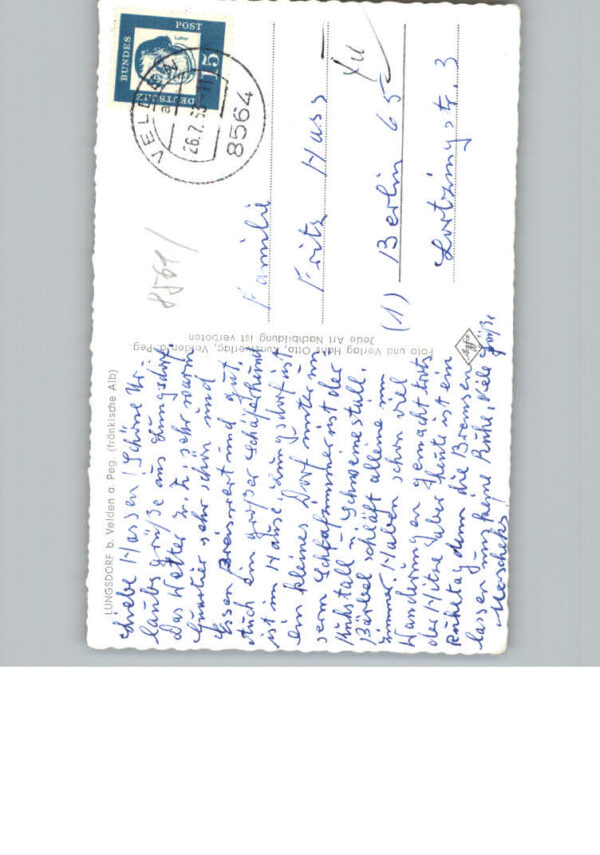 LUNGSDORF b. Velden a. Peg. (fränkische Alb)
Liebe Hassen! Schöne Ur-
laubsgrüße aus Lungsdorf.
Das Wetter z. Z. sehr warm
Quartier sehr schön und
Essen Preiswert und gut.
Auch ein großer Schäferhund
ist im Hause. Lungsdorf ist
ein kleines Dorf, unter un
serm Schlafzimmer ist der
Kuhstall - Schweinestall.
Bärbel schläft alleine im
Zimmer. Haben schon viel
Wanderungen gemacht trotz
der Hitze, aber heute ist ein
Ruhetag, denn die Bremsen
lassen uns keine Ruhe. Viele Grüße
Foto und Verlag Hans Otto, Kunstverlag, Velden a. Peg.
Jede Art Nachbildung ist verboten
effer
8561/
DEUTSCHE
BUNDES
POST
Luther
15
VELDEN
a
26.7.63-11
8564
Familie
Fritz Hass
(1) Berlin 65
Lortzingstr. 3